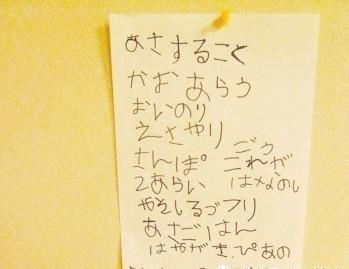 あさすること
かおあらう
おいのり
えさやり
さんぽ ごう
これが
2あらい はなのし
やさしるづフリ
あさごはん
はやがき.ぴあの